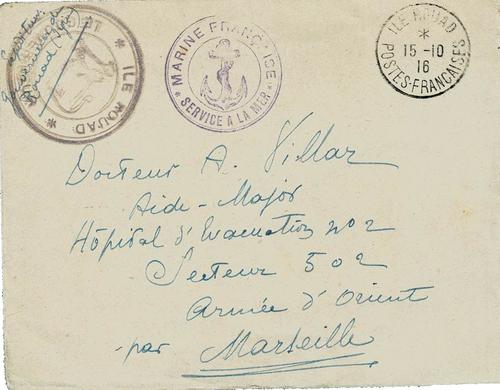 * ILE ROUAD *
MARINE FRANÇAISE
* SERVICE A LA MER *
ILE ROUAD
*
15-10
16
POSTES-FRANÇAISES
Docteur A. Villar
Aide-Major
Hôpital d'Evacuation no 2
Secteur 502
Armée d'Orient
par Marseille